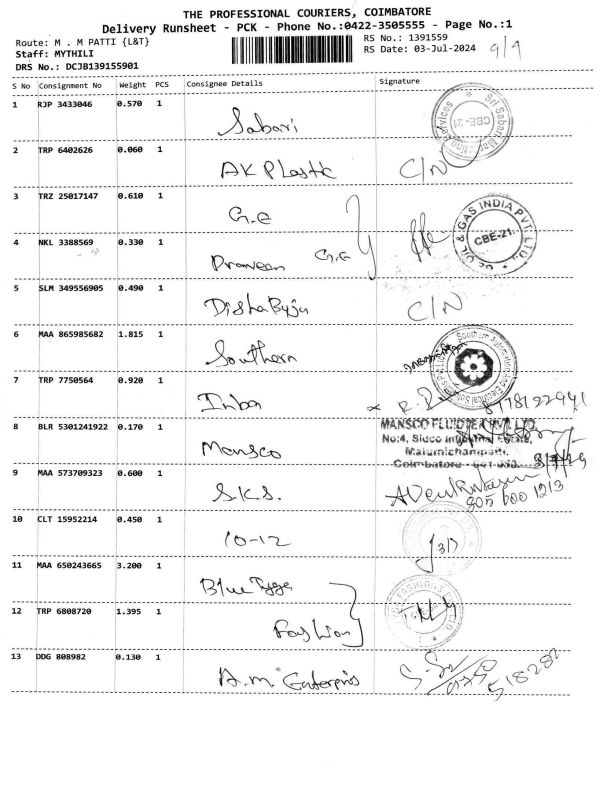 THE PROFESSIONAL COURIERS, COIMBATORE
Delivery Runsheet - PCK - Phone No.:0422-3505555 - Page No.:1
Route: M . M PATTI {L&T} RS No.: 1391559
Staff: MYTHILI RS Date: 03-Jul-2024 9/9
DRS No.: DCJB139155901
S No Consignment No Weight PCS Consignee Details Signature
1 RJP 3433046 0.570 1 Sabari CBE-21
2 TRP 6402626 0.060 1 AK Plastic C/N
3 TRZ 25017147 0.610 1 G.E
OIL & GAS INDIA PVT. LTD. CBE-21.
4 NKL 3388569 0.330 1 Praveen G.E
5 SLM 349556905 0.490 1 Disha Byju C/N
6 MAA 865985682 1.815 1 Southern
7 TRP 7750564 0.920 1 Inba
8 BLR 5301241922 0.170 1 Mansco
MANSCO FLUIDTEK PVT. LTD.
No:4, Sidco Industrial Estate,
Malumichampatti,
Coimbatore - 641 050.
9 MAA 573709323 0.600 1 S.K.S.
10 CLT 15952214 0.450 1 10-12
11 MAA 650243665 3.200 1 Blue Tyga
12 TRP 6808720 1.395 1 Fashion
13 DDG 808982 0.130 1 A.M Enterpris
518282